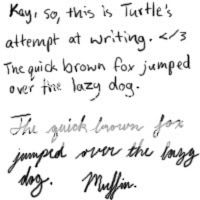 Kay, so, this is Turtle's
attempt at writing. </3
The quick brown fox jumped
over the lazy dog.
The quick brown fox
jumped over the lazy
dog. Muffin.